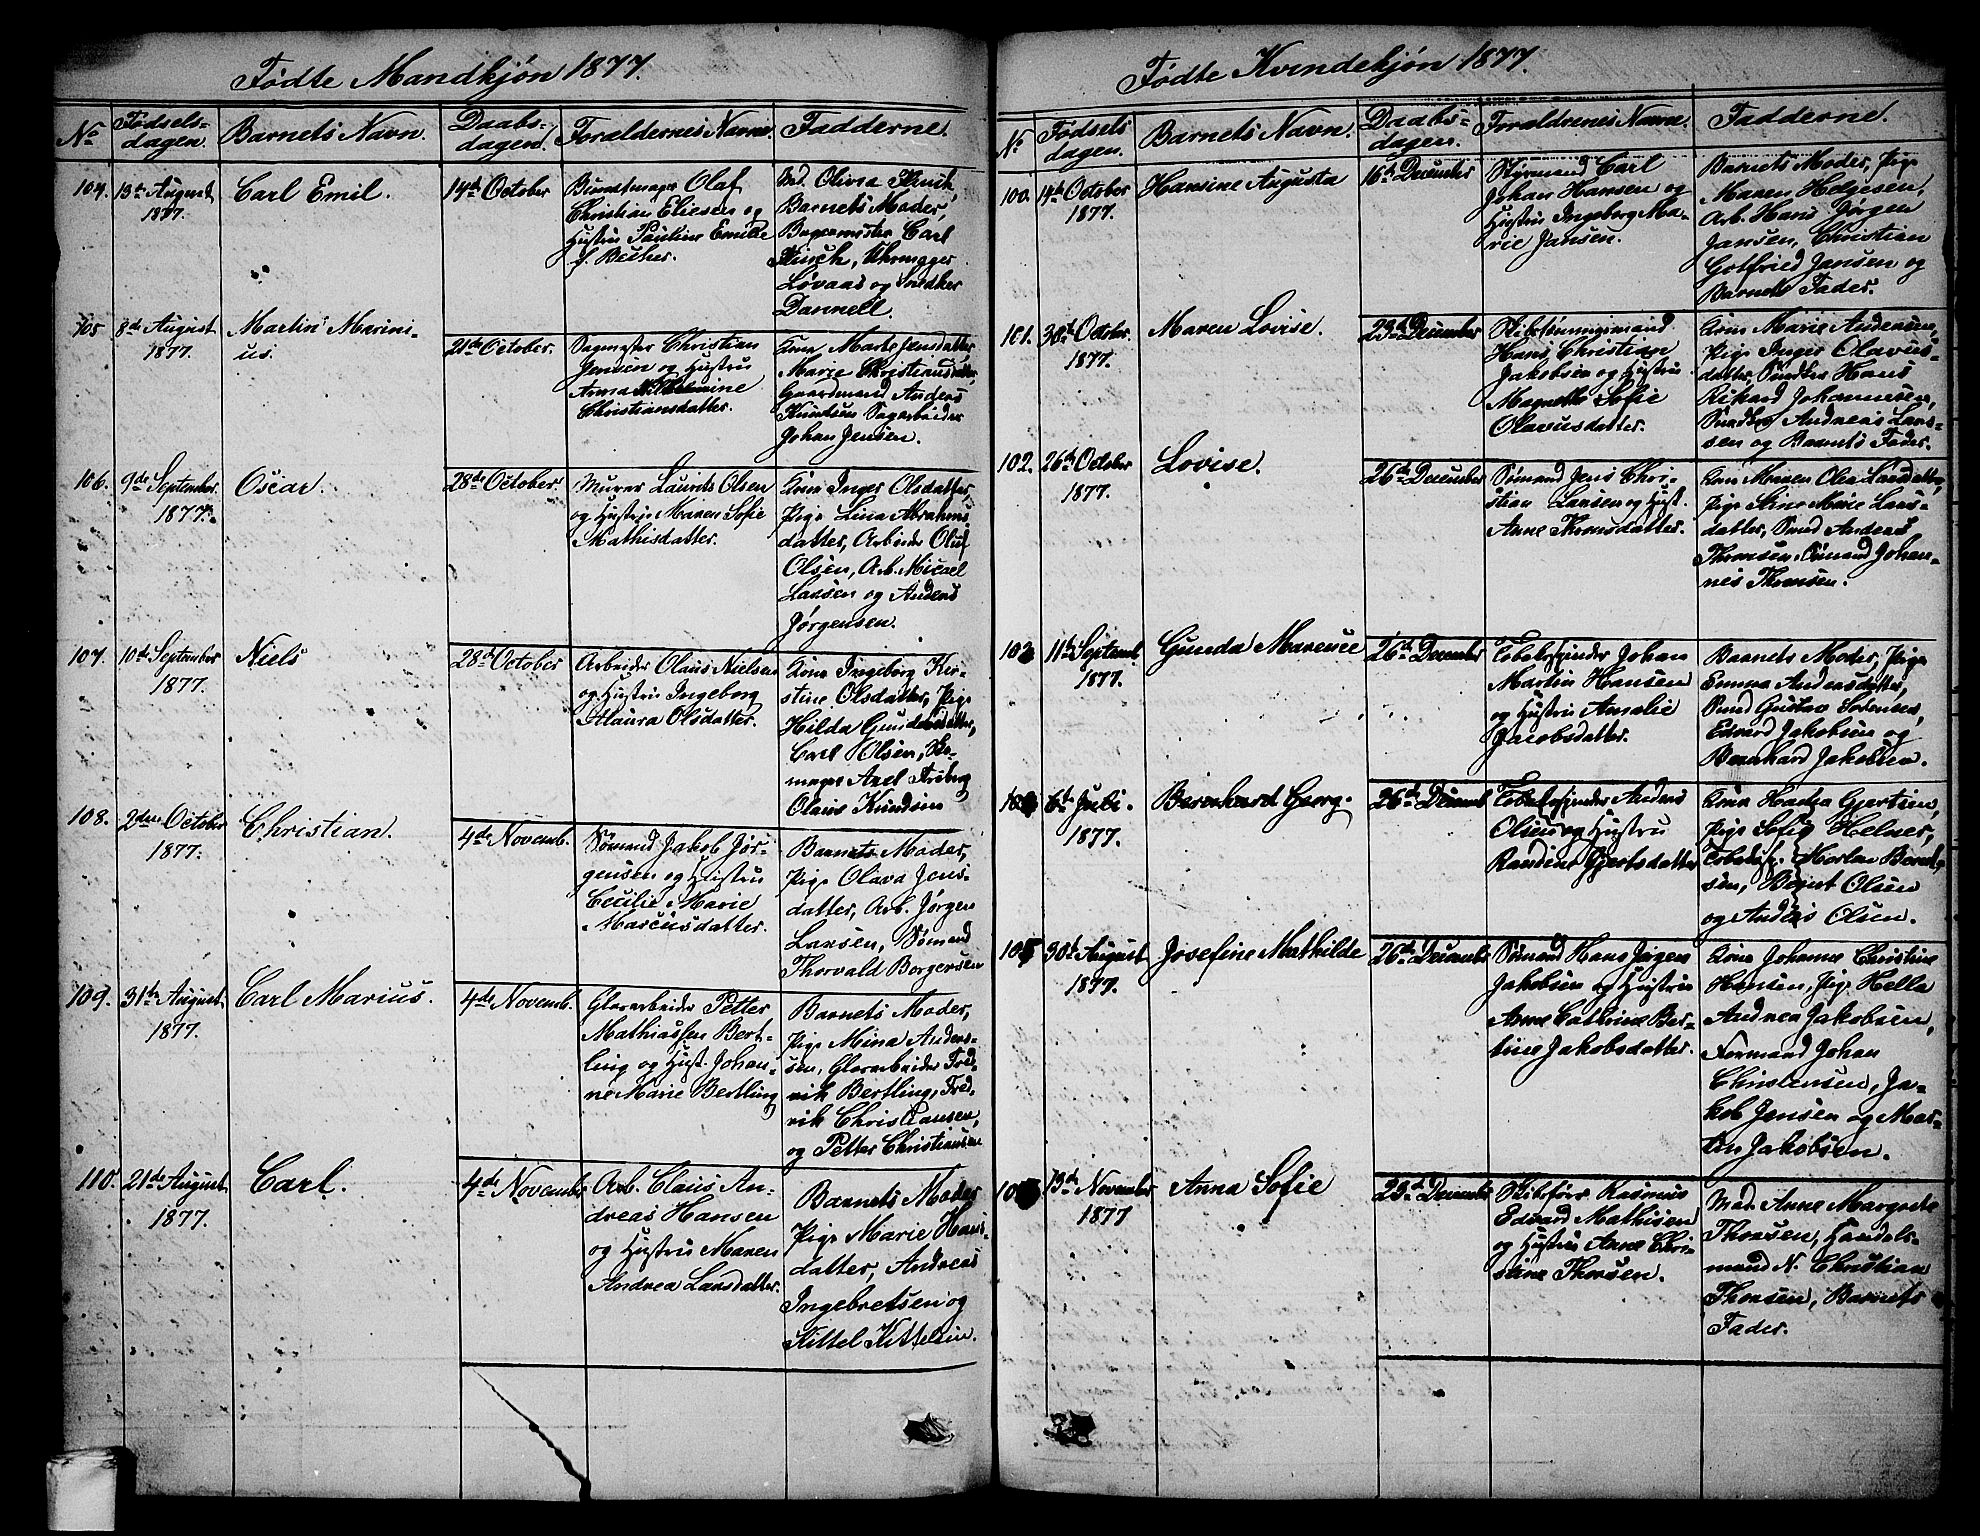 Fødte Mandkjøn 1877.
No
Fødsels-
dagen.
Barnets Navn.
Daabs-
dagen.
Forældernes Navne
Fadderne.
104.
13de August
1877.
Carl Emil.
14de October
Buntmager Olaf
Christian Eliesen og
Hustru Pauline Emilie
f. Becher.
Md. Olivia
Barnets Moder,
Bagermester Carl
Løvaas og Snedker
Dannell.
105
8de August
1877.
Martin Marini-
us.
21de October.
Sagmester Christian
Jensen og Hustru
Anna
Christiansdatter.
Kone Marte Jensdatter,
Marie Christiansdatter,
Gaardmand Anders
Knudsen Sagarbeider
Johan Jensen.
106.
9de September
1877.
Oscar.
28de October.
Murer Laurits Olsen
og Hustru Maren Sofie
Mathisdatter.
Kone Inger Olsdatter,
Pige Lina Abrahams-
datter, Arbeider Oluf
Olsen, Arb. Micael
Larsen og Anders
Jørgensen.
107.
10de September
1877.
Niels
28de October
Arbeider Olaus Nielsen
og Hustru Ingeborg
Maura Olsdatter.
Kone Ingeborg Kir-
stine Olsdatter, Pige
Hilda Gundersdatter,
Carl Olsen, Sko-
mager Axel Friberg
Olaus Knudsen
108.
2den October
1877.
Christian.
4de Novemb.
Sømand Jakob Jør-
gensen og Hustru
Cecilie Marie
Marcusdatter.
Barnets Moder,
Pige Olava Jens-
datter, Arb. Jørgen
Larsen, Sømand
Thorvald Borgersen
109.
31te August
1877.
Carl Marius.
4de Novemb.
Glasarbeider Petter
Mathiassen Bert-
ling og Hust. Johan-
ne Marie Bertling
Barnets Moder,
Pige Mina Anders-
sen, Glasarbeider Fred-
rik Bertling, Fred-
rik Christiansen,
og Petter Christiansen
110.
21de August
1877.
Carl.
4de November
Arb. Claus An-
dreas Hansen
og Hustru Maren
Andrea Larsdatter.
Barnets Moder
Pige Marie Hans-
datter, Andreas
Ingebretsen og
Kittel Kittelsen.
Fødte Kvindekjøn 1877.
No
Fødsels
dagen.
Barnets Navn.
Daabs-
dagen.
Forældrenes Navne.
Fadderne.
100.
14de October
1877.
Hansine Augusta
16de December
Styrmand Carl
Johan Hansen og
Hustru Ingeborg Ma-
rie Jansen.
Barnets Moder, Pige
Maren Helgesen,
Arb. Hans Jørgen
Jansen, Christian
Gotfried Jansen og
Barnets Fader.
101.
30te October
1877.
Maren Lovise.
23de December
Skibstømmermand
Hans Christian
Jakobsen og Hustru
Magnette Sofie
Olavusdatter.
Kone Marie Andersen,
Pige Inger Olavus-
datter, Snedker Hans
Rikard Johannesen,
Snedker Andreas Lars-
sen og Barnets Fader.
102.
26de October
1877.
Lovise.
26de December
Sømand Jens Chri-
stian Larsen og Hust.
Anne Thorsdatter.
Kone Maren Olea Larsdatter,
Pige Stine Marie Lars-
datter, Smed Anders
Thorsen, Sømand Johan-
nes Thorsen.
103
11te Septemb.
1877.
Gunda Marence
26de December
Tobakspinder Johan
Martin Hansen
og Hustru Amalie
Jacobsdatter.
Barnets Moder, Pige
Emma Andersdatter,
Smed Gustav Sørensen,
Edvard Jakobsen og
Bernhard Jakobsen.
6te Juli.
1877.
Bernhard Georg.
26de Decemb
Tobakspinder Anders
Olsen og Hustru
Randine Gjertsdatter
Kone Hadea Gjertsen,
Pige Sofie Helner,
Tobaksp. Morten Bernt-
sen, Berent Olsen
og Anders Olsen.
30te August
1877.
Josefine Mathilde
26de December
Sømand Hans Jørgen
Jakobsen og Hustru
Anne Cathrine Ber-
tine Jakobsdatter.
Kone Johanne Christine
Hansen, Pige Hella
Andrea Jakobsen,
Formand Johan
Christensen, Ja-
kob Jensen og Mar-
tin Jakobsen.
13de November
1877
Anna Sofie
23de December
Skibsfører Rasmus
Edvard Mathisen
og Hustru Anne Chri-
stine Thorsen.
Mad. Anne Margrete
Thorsen, Handels-
mand N. Christian
Thorsen, Barnets
Fader.